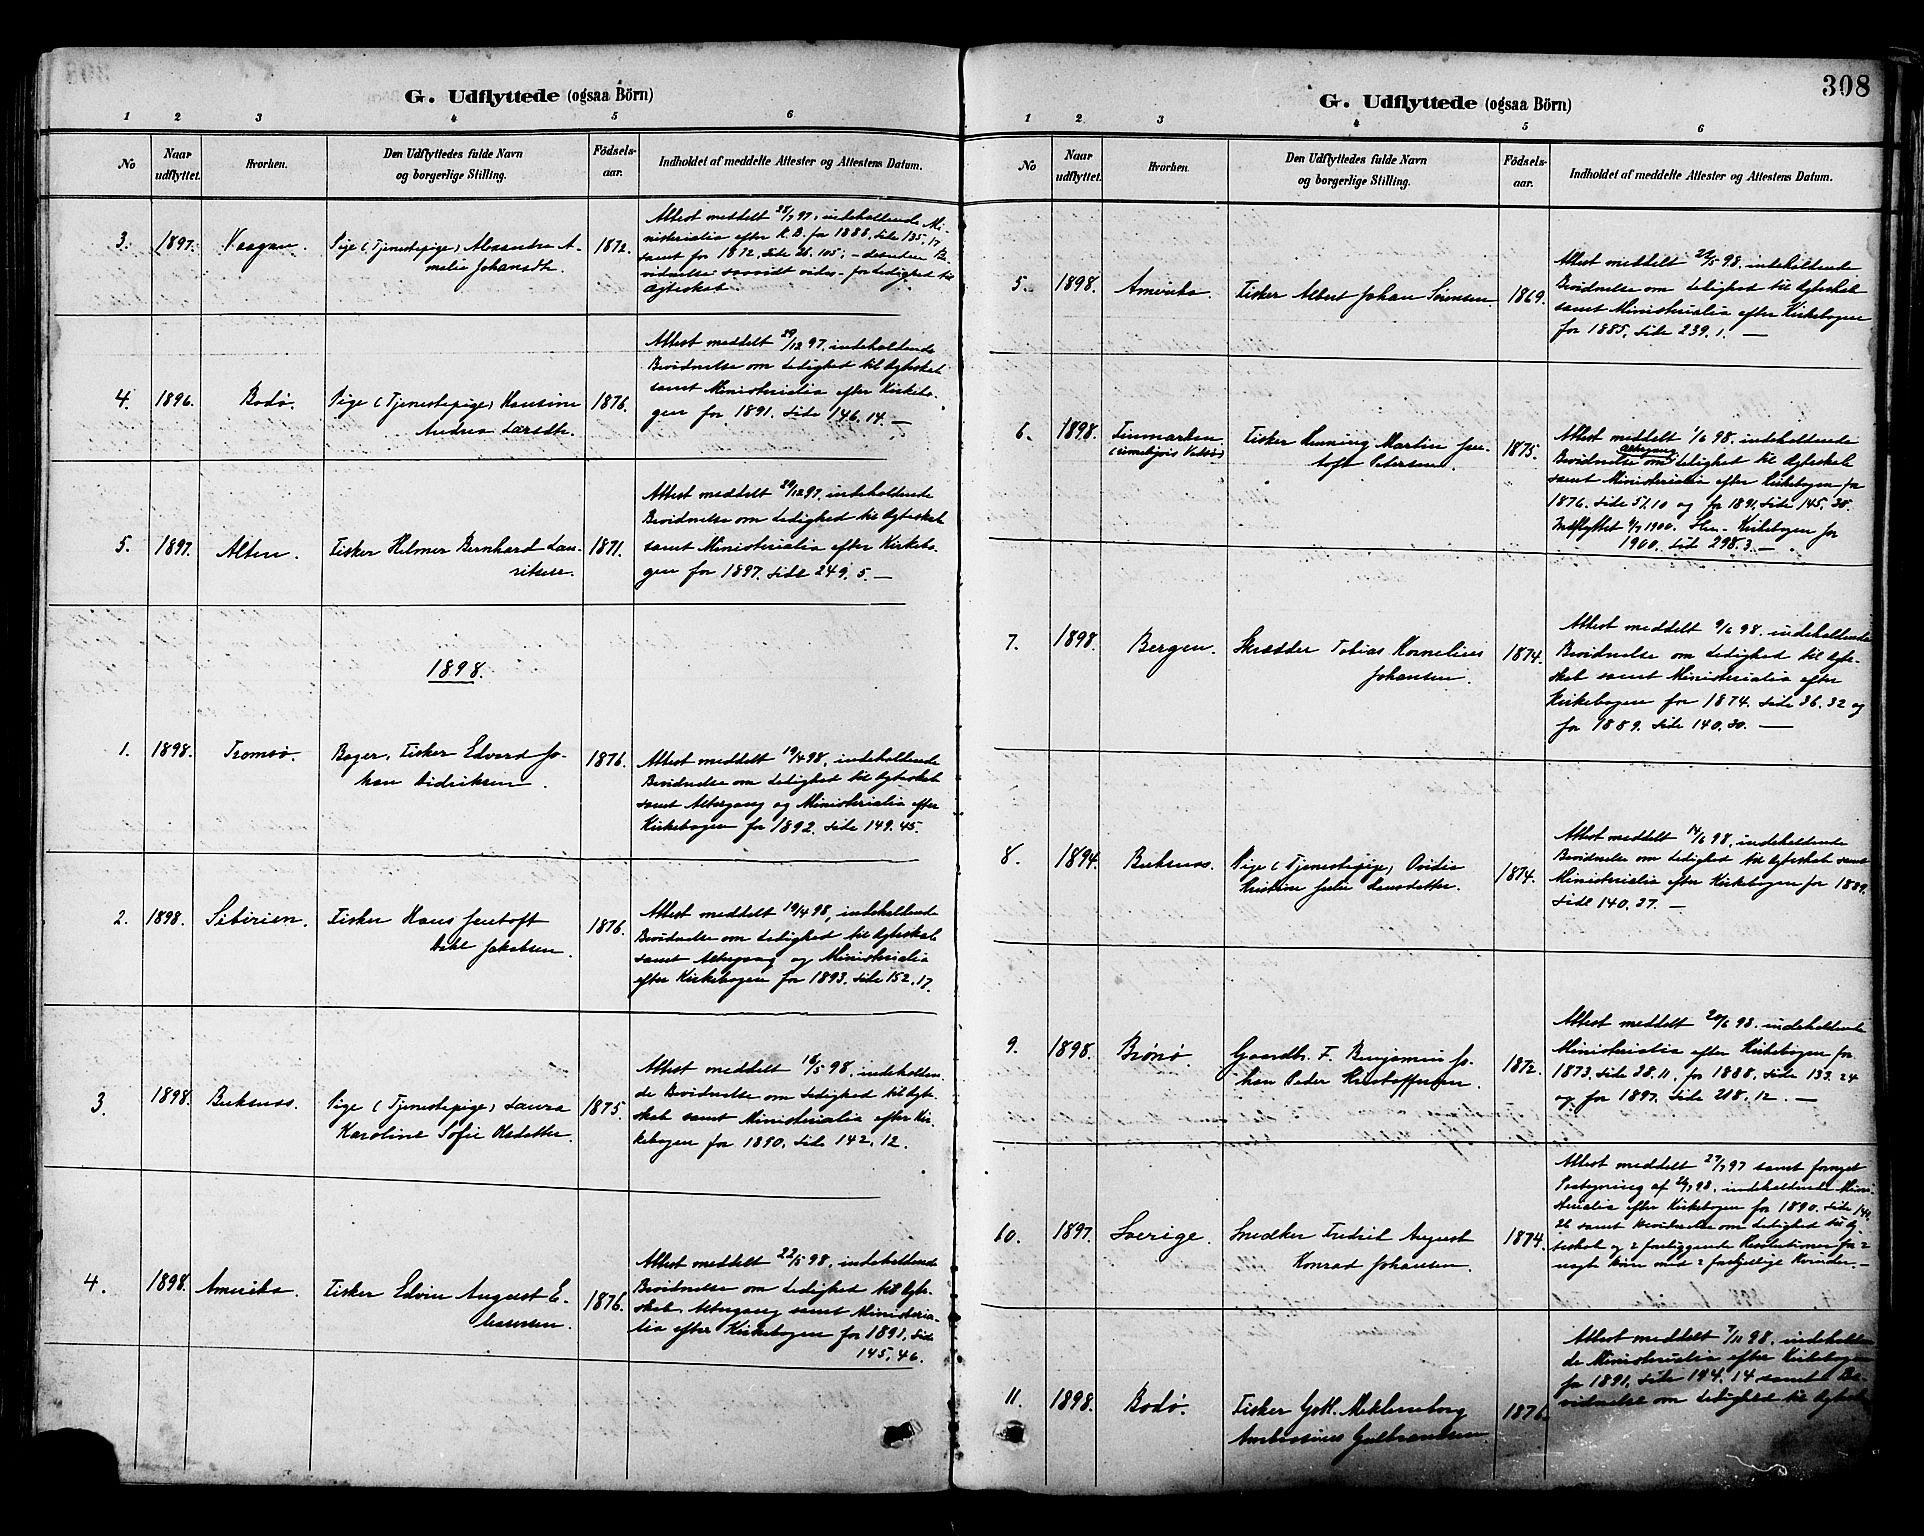 G. Udflyttede (ogsaa Börn)
1 2 3 4 5 6
No
Naar udflyttet.
Hvorhen.
Den Udflyttedes fulde Navn
og borgerlige Stilling.
Födsels-
aar.
Indholdet af meddelte Attester og Attestens Datum.
3. 1897. Vaagan. Pige (Tjenestepige) Alexandra A-
melie Johansdtr. 1872.
Attest meddelt 28/7 97, indeholdende Mi-
nisterialia efter K.B. for 1888, Side 135, 17
samt for 1872, Side 26. 105; - desuden Be-
vidnelse saavidt vides - for Ledighed til
Ægteskab.
4. 1896. Bodø. Pige (Tjenestepige) Hansine
Andrea Larsdtr. 1876.
Attest meddelt 29/12 97, indeholdende
Bevidnelse om Ledighed til Ægteskab
samt Ministerialia efter Kirkebo-
gen for 1891. Side 146. 14. —
5. 1897. Alten. Fisker Helmer Bernhard Lau-
ritsen. 1871.
Attest meddelt 29/12 97, indeholdende
Bevidnelse om Ledighed til Ægteskab
samt Ministerialia efter Kirkebo-
gen for 1897. Side 249. 5. —
1898.
1. 1898. Tromsø. Bager, Fisker Edvard Jo-
han Didriksen. 1876.
Attest meddelt 19/4 98, indeholdende
Bevidnelse om Ledighed til Ægteskab
samt Altergang og Ministerialia efter
Kirkebogen for 1892. Side 149. 45.
2. 1898. Sibirien. Fisker Hans Jentoft
Dahl Jakobsen. 1876.
Attest meddelt 19/4 98, indeholdende
Bevidnelse om Ledighed til Ægteskab
samt Altergang og Ministerialia
efter Kirkebogen for 1893. Side 152. 17.
3. 1898. Buksnes. Pige (Tjenestepige) Laura
Karoline Sofie Olsdatter. 1875.
Attest meddelt 18/5 98, indeholden-
de Bevidnelse om Ledighed til Ægte-
skab samt Ministerialia efter Kir-
kebogen for 1890. Side 142. 12.
4. 1898. Amerika. Fisker Edvin August E-
liassen. 1876.
Attest meddelt 22/5 98, indeholdende
Bevidnelse om Ledighed til Ægte-
skab, Altergang samt Ministeria-
lia efter Kirkebogen for 1891. Side
145. 46.
308
G. Udflyttede (ogsaa Börn)
1 2 3 4 5 6
No
Naar udflyttet.
Hvorhen.
Den Udflyttedes fulde Navn
og borgerlige Stilling.
Födsels-
aar.
Indholdet af meddelte Attester og Attestens Datum.
5. 1898. Amerika. Fisker Albert Johan Sørensen 1869.
Attest meddelt 22/5 98, indeholdende
Bevidnelse om Ledighed til Ægteskab
samt Ministerialia efter Kirkebogen
for 1885. Side 239. 1. —
6. 1898. Finmarken
(rimeligvis Vadsø) Fisker Henning Martin Jen-
toft Petersen. 1875.
Attest meddelt 1/6 98, indeholdende
Altergang
Bevidnelse om Ledighed til Ægteskab
samt Ministerialia efter Kirkebogen for
1876. Side 51. 10 og for 1891. Side 145. 38.
Indflyttet 9/7 1900. Hen. Kirkebogen for
1900. Side 298. 3. —
7. 1898. Bergen. Skrædder Tobias Kornelius
Johansen. 1874.
Attest meddelt 9/6 98, indeholdende
Bevidnelse om Ledighed til Ægte-
skab samt Ministerialia efter
Kirkebogen for 1874. Side 36. 32 og
for 1889. Side 140. 30. —
8. 1894. Buksnes. Pige (Tjenestepige) Ovidia
Kristine Julie Hansdatter. 1874.
Attest meddelt 14/6 98, indeholdende
Bevidnelse om Ledighed til Ægteskab samt
Ministerialia efter Kirkebogen for 1889.
Side 140. 27. —
9. 1898. Brønø. Gaardbr. F. Benjamin Jo-
han Peder Kristoffersen. 1872.
Attest meddelt 20/6 98, indeholdende
Ministerialia efter Kirkebogen for
1873. Side 28. 11, for 1888. Side 133. 24
og for 1897. Side 218. 12. —
10. 1897. Sverige. Snedker Fredrik August
Konrad Johansen. 1874.
Attest meddelt 27/7 97 samt fornyet
Paategning af 26/7 98, indeholdende Mini-
sterialia efter Kirkebogen for 1890. Side 144.
26 samt Bevidnelse om Ledighed til Æg-
teskab og 2 foreliggende Resolutioner for 2
uægt. Børn med 2 forskjellige Kvinder. —
11. 1898. Bodø. Fisker Gottl. Meklenborg
Ambrosius Gulbrandsen. 1876.
Attest meddelt 7/11 98, indeholden-
de Ministerialia efter Kirkebogen
for 1891. Side 144. 14 samt Be-
vidnelse om Ledighed til Ægteskab